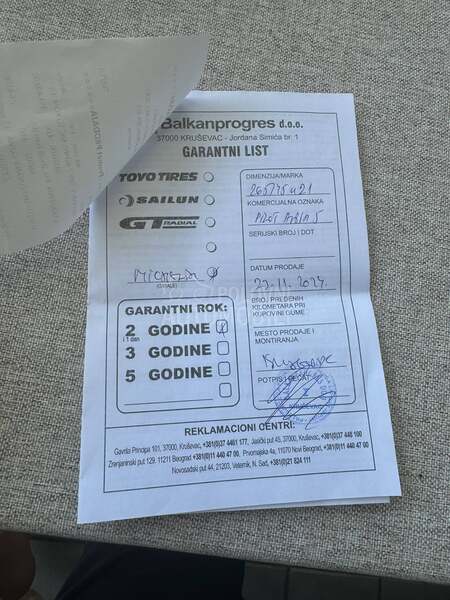 Balkanprogres d.o.o.
37000 KRUŠEVAC - Jordana Simića br. 1
GARANTNI LIST
TOYO TIRES
SAILUN
GT RADIAL
(OSTALE)
GARANTNI ROK:
2 GODINE
i 1 dan
3 GODINE
5 GODINE
DIMENZIJA/MARKA
KOMERCIJALNA OZNAKA
SERIJSKI BROJ I DOT
DATUM PRODAJE
22-11. 2024.
BROJ PREĐENIH
KILOMETARA PRI
KUPOVINI GUME
MESTO PRODAJE I
MONTIRANJA
Kruševac
POTPIS I PEČAT
REKLAMACIONI CENTRI:
Gavrila Principa 101, 37000, Kruševac, +381(0)37 4461 177, Jasički put 45, 37000, Kruševac, +381(0)37 448 100
Zrenjaninski put 129, 11211 Beograd +381(0)11 440 47 00, Prvomajska 4a, 11070 Novi Beograd, +381(0)11 440 47 00
Novosadski put 44, 21203, Veternik, N. Sad, +381(0)21 824 111